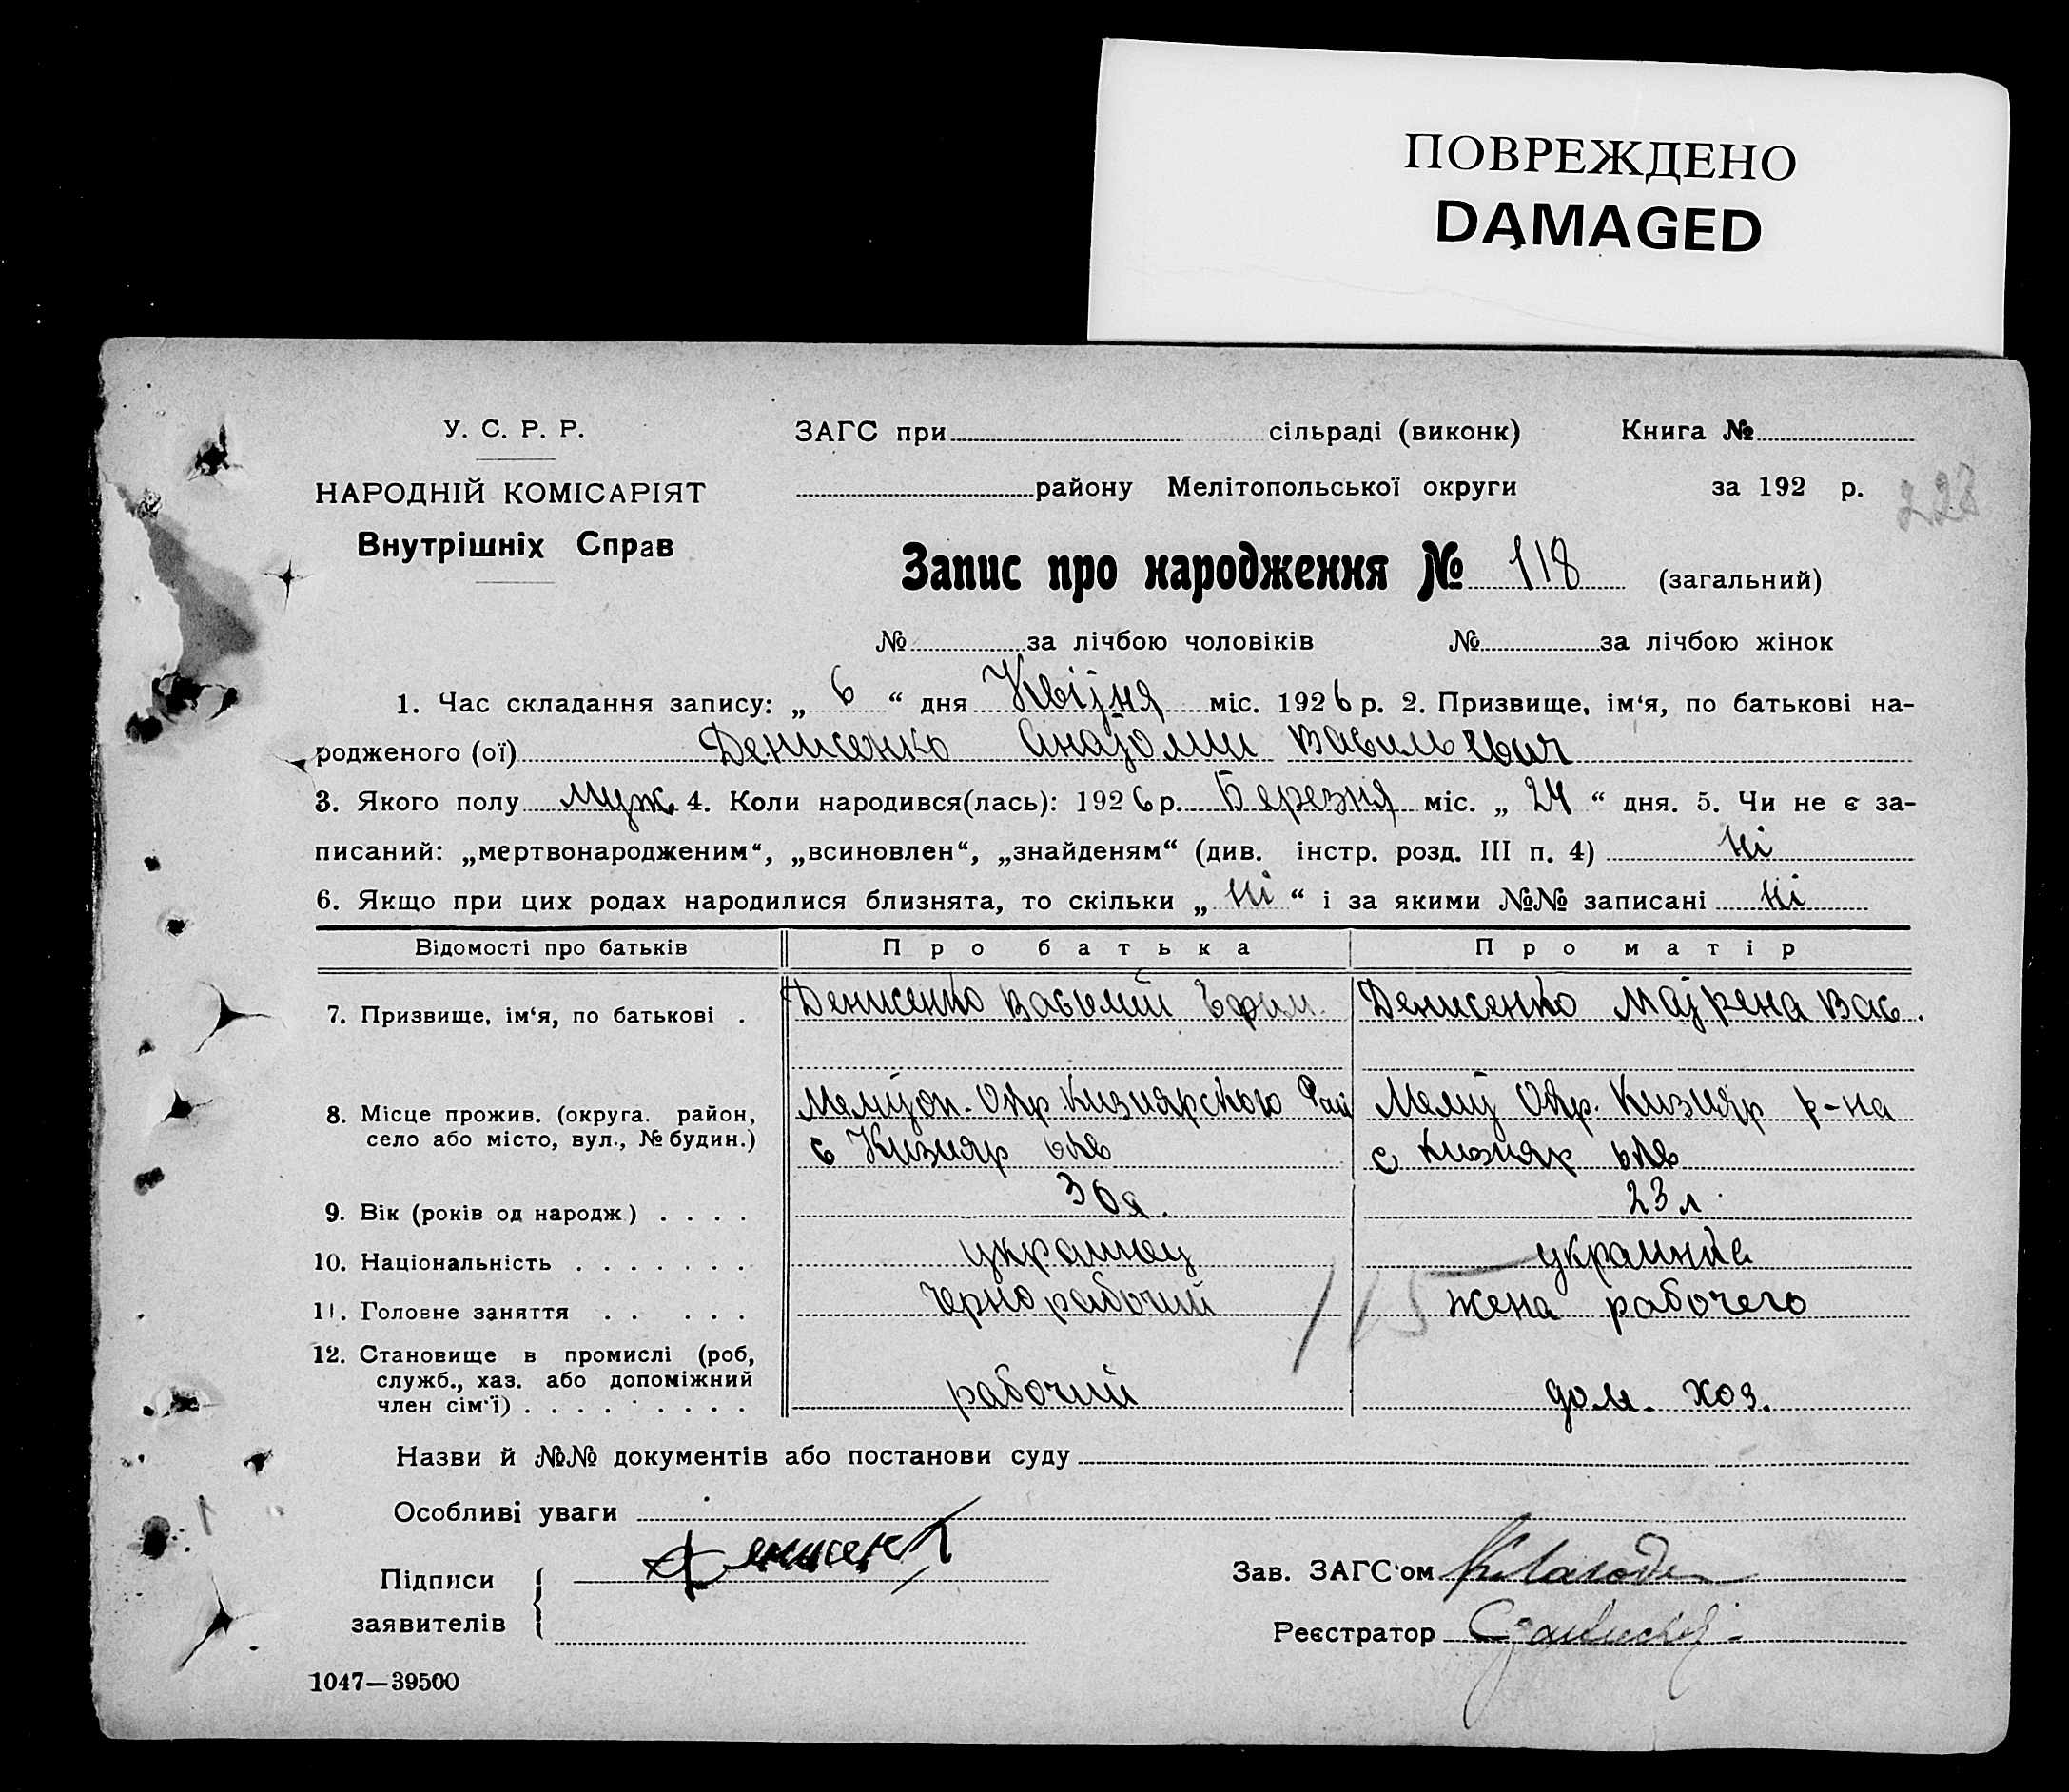 ПОВРЕЖДЕНО
DAMAGED
У. С. Р. Р.
НАРОДНІЙ КОМІСАРІЯТ
Внутрішніх Справ
ЗАГС при сільраді (виконк) Книга №
району Мелітопольської округи за 192 р.
228
Запис про народження № 118 (загальний)
№ за лічбою чоловіків № за лічбою жінок
1. Час складання запису: „ 6 “ дня Квітня міс. 1926 р. 2. Призвище, ім‘я, по батькові на-
родженого (ої) Денисенко Анатолии Васильевич
3. Якого полу муж 4. Коли народився(лась): 1926 р. Березня міс. „ 24 “ дня. 5. Чи не є за-
писаний: „мертвонародженим“, „всиновлен“, „знайденям“ (див. інстр. розд. III п. 4) Ні
6. Якщо при цих родах народилися близнята, то скільки „ Ні “ і за якими №№ записані Ні
Відомості про батьків Про батька Про матір
7. Призвище, ім‘я, по батькові . Денисенко Василий Ефим. Денисенко Матрена Вас.
8. Місце прожив. (округа. район, село або місто, вул., № будин.) Мелитоп. Окр Кизиярского Рай Мелит Окр. Кизияр р-на
с Кизияр с Кизияр
9. Вік (років од народж) . . . . 30 л. 23 л.
10. Національність . . . . . . . украинец украинка
11. Головне заняття . . . . . чернорабочий 115 жена рабочего
12. Становище в промислі (роб,
служб., хаз. або допоміжний
член сім‘ї) . . . . . . . . . рабочий дом. хоз.
Назви й №№ документів або постанови суду
Особливі уваги
Підписи заявителів Денисенко
Зав. ЗАГС‘ом
Реєстратор
1047—39500